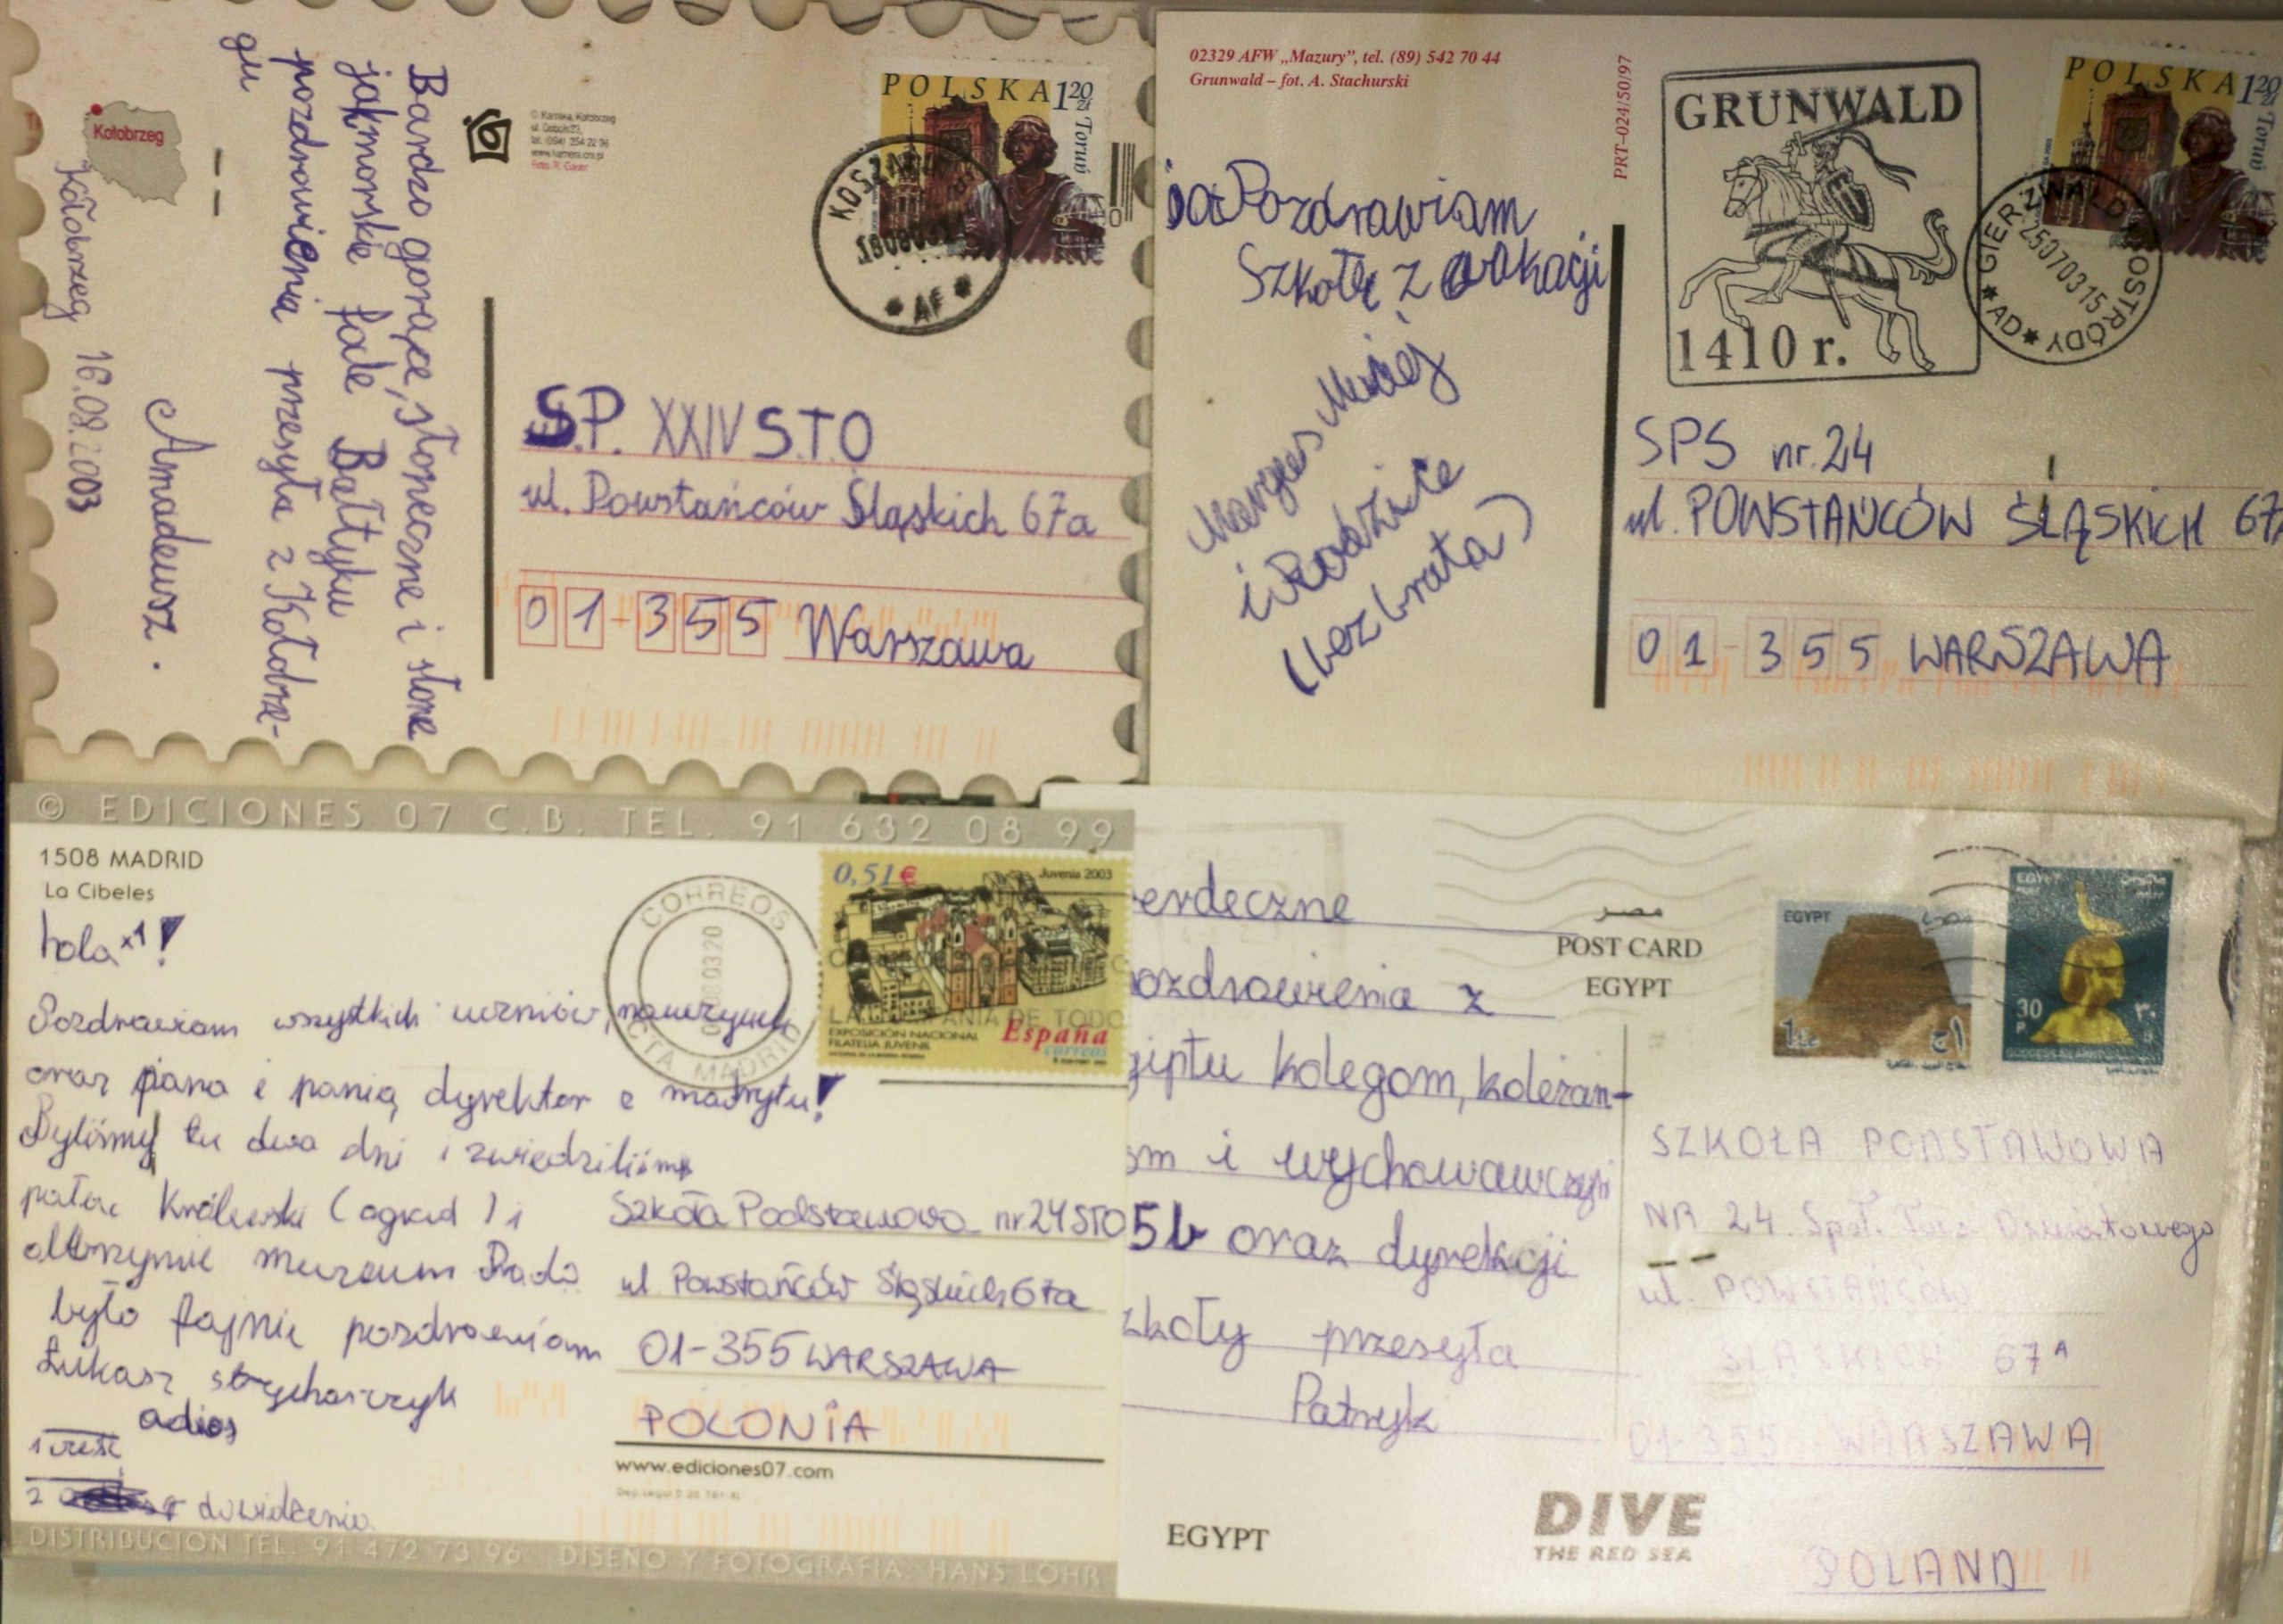 Kołobrzeg
Kołobrzeg 16.08.2003
Bardzo gorące, słoneczne i słone
jak morskie fale Bałtyku
pozdrowienia przesyła z Kołobrze-
gu
Amadeusz.
© Kamera, Kołobrzeg
POLSKA 1,20 zł
Toruń
* AF *
S.P. XXIV S.T.O
ul. Powstańców Śląskich 67a
01-355 Warszawa
02329 AFW „Mazury”, tel. (89) 542 70 44
Grunwald – fot. A. Stachurski
PRT-024/50/97
Pozdrawiam
Szkołę z wakacji
Maciej
i Rodzice
(bez brata)
GRUNWALD
1410 r.
POLSKA 120 zł
Toruń
GIERZWAŁD K. OSTRÓDY
25070315
* AD *
SPS nr.24
ul. POWSTAŃCÓW ŚLĄSKICH 67A
01-355 WARSZAWA
© EDICIONES 07 C.B. TEL. 91 632 08 99
1508 MADRID
La Cibeles
hola x1!
Pozdrawiam wszystkich uczniów,
oraz pana i panią dyrektor z madrytu!
Byliśmy tu dwa dni i zwiedziliśmy
pałac Królewski (ogród) i
olbrzymie muzeum Prado
było fajnie pozdrawiam
Łukasz strycharczyk
adios
1 cześć
2 dowidzenia
CORREOS
CTA MADRID
0,51€
Juvenia 2003
España
correos
EXPOSICIÓN NACIONAL
FILATELIA JUVENIL
Szkoła Podstawowa nr 24 STO
ul Powstańców Śląskich 67a
01-355 WARSZAWA
POLONIA
www.ediciones07.com
DISTRIBUCION TEL. 91 472 73 96 DISEÑO Y FOTOGRAFIA: HANS LOHR
erdeczne
ozdrowienia z
giptu kolegom, koleżan-
om i wychowawczyni
5b oraz dyrekcji
zkoły przesyła
Patryk
مصر
POST CARD
EGYPT
EGYPT
مصر
1 L.E
١ج
EGYPT
30 P.
٣٠
SZKOŁA PODSTAWOWA
NR 24 Społ. Tow. Oświatowego
ul. POWSTAŃCÓW
ŚLĄSKICH 67A
01-355 WARSZAWA
POLAND
EGYPT
DIVE
THE RED SEA